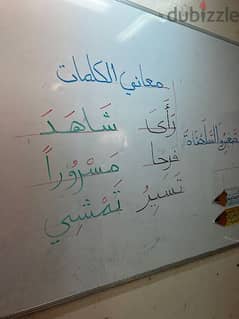 dubizzle
معاني الكلمات
رَأَى شَاهَدَ
فرحا مَسْرُوْراً
تَسِيرُ تَمْشِي